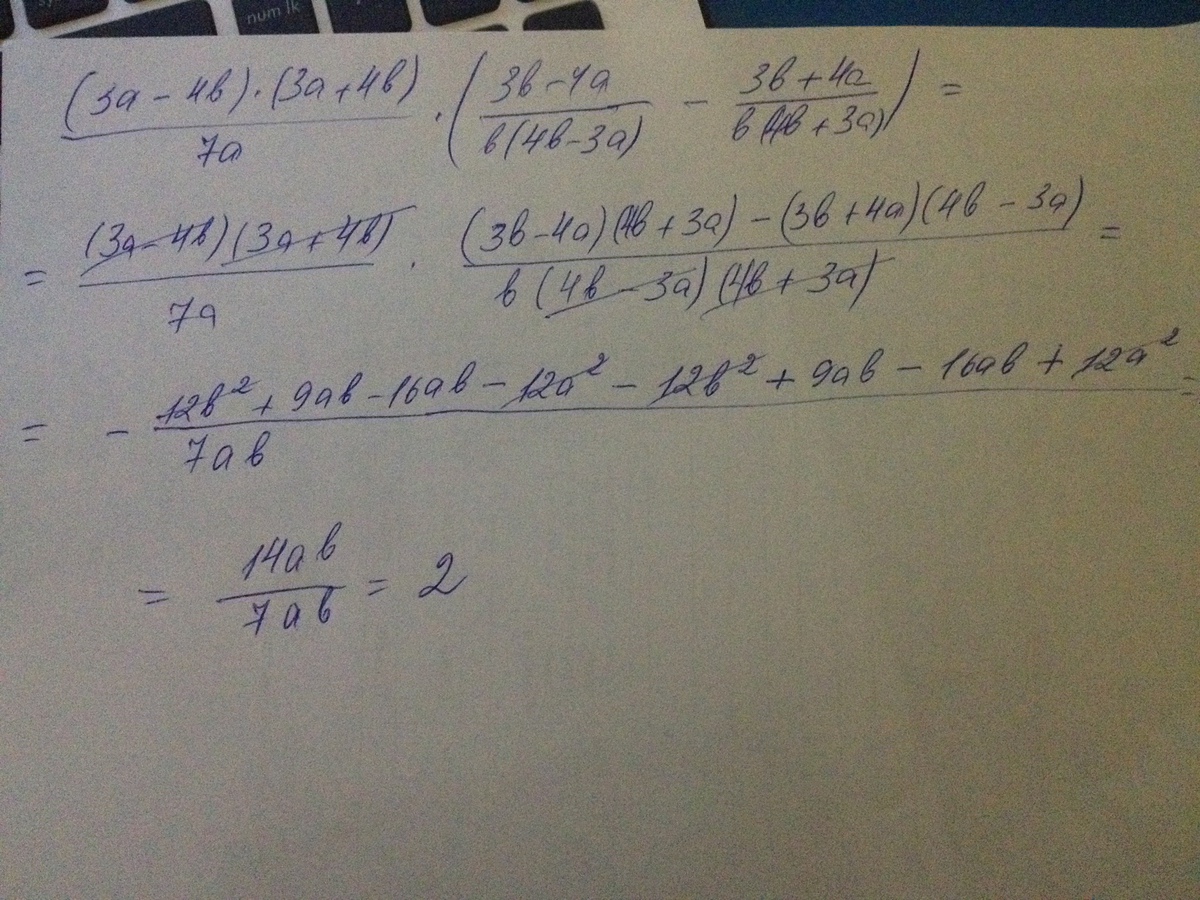 num lk
(3a - 4b)·(3a + 4b) / 7a · (3b - 4a / b(4b - 3a) - 3b + 4a / b(4b + 3a)) =
= (3a - 4b)(3a + 4b) / 7a · (3b - 4a)(4b + 3a) - (3b + 4a)(4b - 3a) / b(4b - 3a)(4b + 3a) =
= - 12b² + 9ab - 16ab - 12a² - 12b² + 9ab - 16ab + 12a² / 7ab =
= 14ab / 7ab = 2